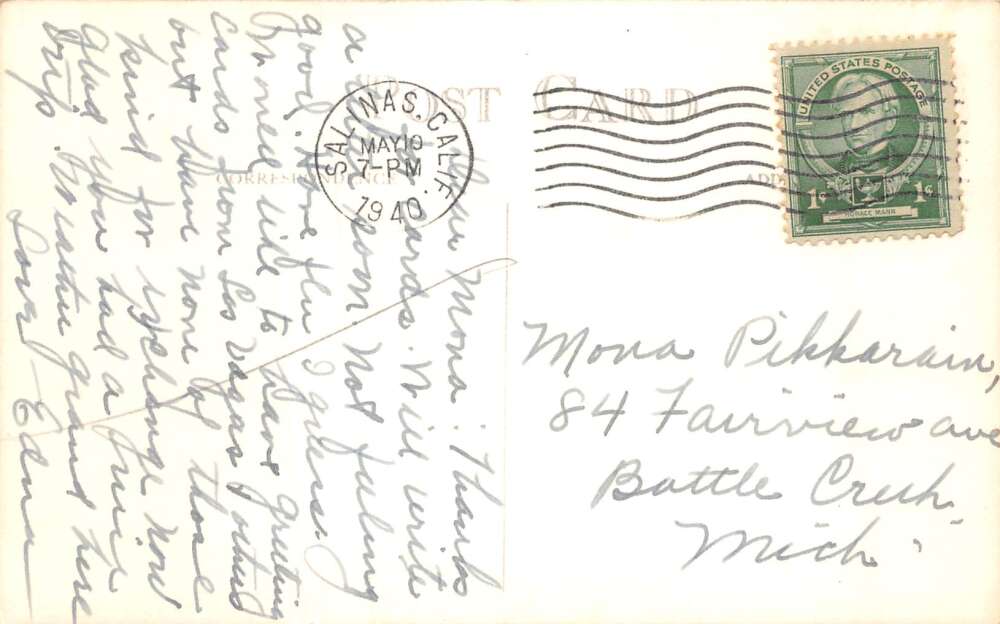 POST CARD
CORRESPONDENCE
SALINAS, CALIF.
MAY 10
7-PM
1940
UNITED STATES POSTAGE
1¢ 1¢
HORACE MANN
Dear Mona: Thanks
a lot for cards. Will write
you soon. Not feeling
good. Have flu I guess.
Would like to have greeting
cards from Las Vegas
but have none of those
kind for exchange now
Glad you had a fine
trip. Weather grand here
Love – Edna
Mona Pikkarain,
84 Fairview ave
Battle Creek
Mich.